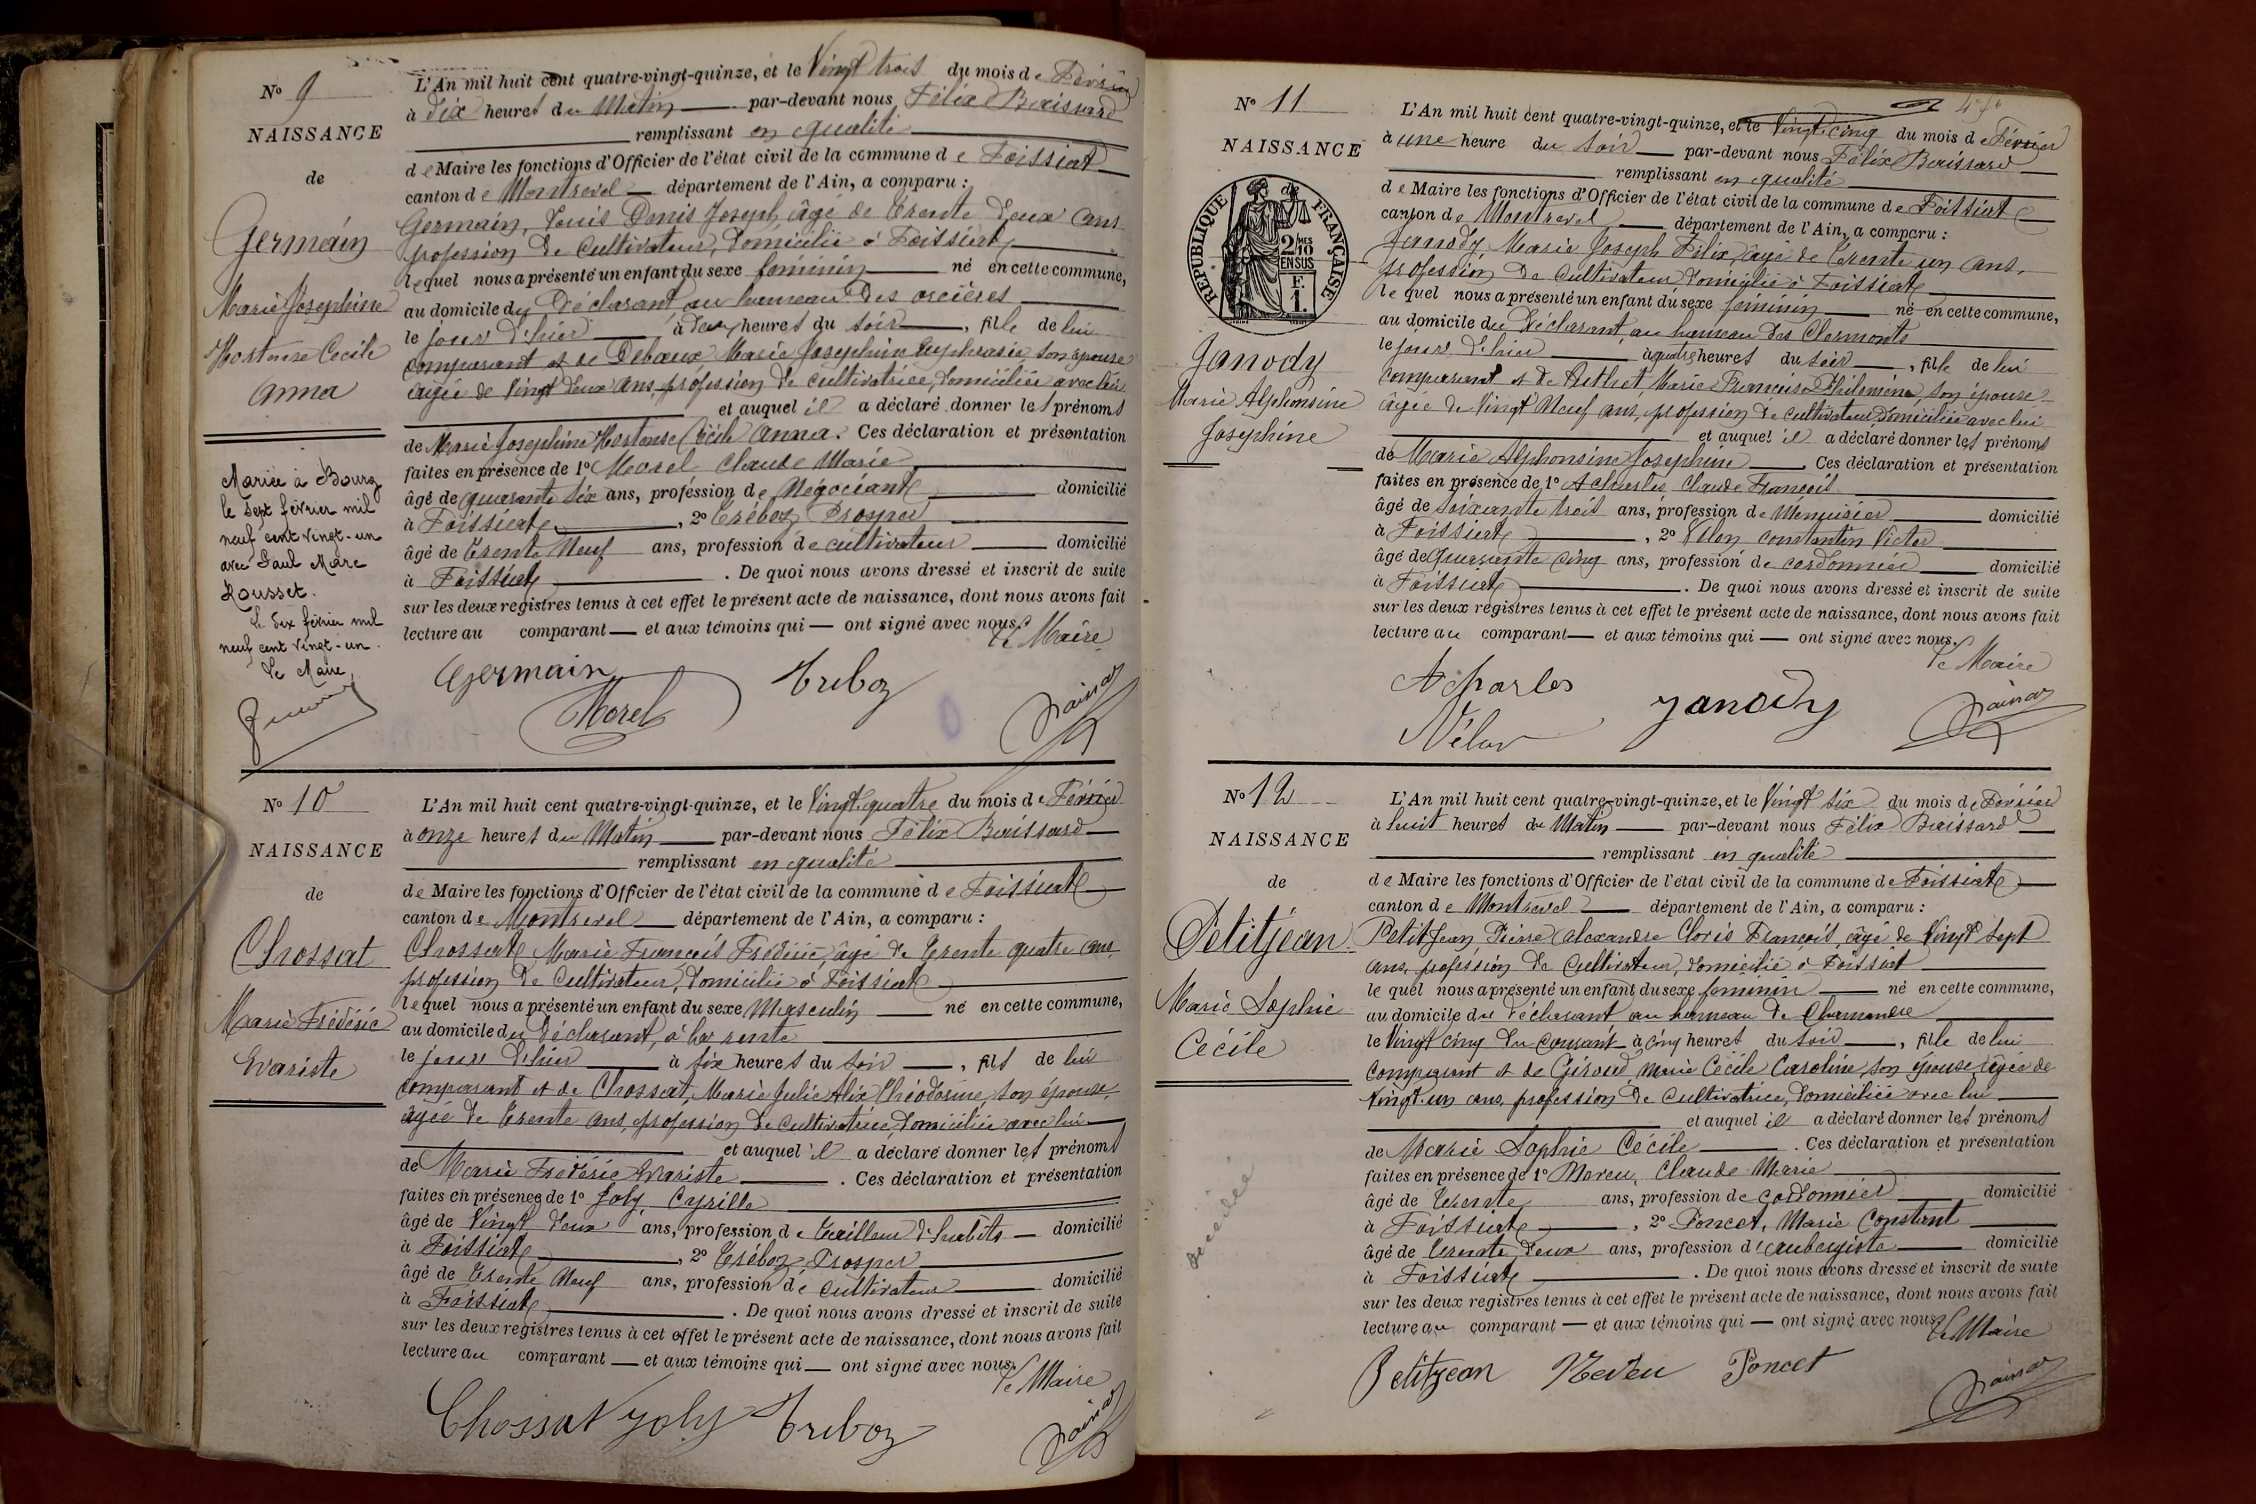 N° 9
NAISSANCE
de
Germain
Marie Josephine
Hortense Cécile
Anna
Mariée à Bourg
le sept février mil
neuf cent vingt-un
avec Paul Marc
Rousset.
Le dix février mil
neuf cent vingt-un.
Le Maire,
L'An mil huit cent quatre-vingt-quinze, et le Vingt trois du mois de Février
à dix heures du Matin par-devant nous Félix Baissard
remplissant en qualité
de Maire les fonctions d'Officier de l'état civil de la commune de Foissiat
canton de Montrevel département de l'Ain, a comparu :
Germain, Louis Denis Joseph, âgé de trente deux ans
profession de cultivateur, domicilié à Foissiat
lequel nous a présenté un enfant du sexe féminin né en cette commune,
au domicile du déclarant au hameau des orcières
le jour d'hier à deux heures du soir, fille de lui
comparant et de Deboeux Marie Josephine Euphrasie, son épouse
âgée de vingt deux ans, profession de cultivatrice, domiciliée avec lui
et auquel il a déclaré donner les prénoms
de Marie Josephine Hortense Cécile Anna. Ces déclaration et présentation
faites en présence de 1° Morel Claude Marie
âgé de quarante six ans, profession de Négociant domicilié
à Foissiat, 2° Tréboz Prosper
âgé de trente Neuf ans, profession de cultivateur domicilié
à Foissiat. De quoi nous avons dressé et inscrit de suite
sur les deux registres tenus à cet effet le présent acte de naissance, dont nous avons fait
lecture au comparant et aux témoins qui ont signé avec nous.
Le Maire
Germain Morel Treboz Baissard
N° 10
NAISSANCE
de
Chossat
Marie Frédéric
Evariste
L'An mil huit cent quatre-vingt-quinze, et le Vingt quatre du mois de Février
à onze heures du Matin par-devant nous Félix Baissard
remplissant en qualité
de Maire les fonctions d'Officier de l'état civil de la commune de Foissiat
canton de Montrevel département de l'Ain, a comparu :
Chossat Marie François Frédéric, âgé de trente quatre ans,
profession de cultivateur, domicilié à Foissiat
lequel nous a présenté un enfant du sexe Masculin né en cette commune,
au domicile du déclarant, à la rente
le jour d'hier à six heures du soir, fils de lui
comparant et de Chossat, Marie Julie Alix Théodorine, son épouse,
âgée de trente ans, profession de cultivatrice, domiciliée avec lui
et auquel il a déclaré donner les prénoms
de Marie Frédéric Evariste. Ces déclaration et présentation
faites en présence de 1° Joly, Cyrille
âgé de Vingt deux ans, profession de tailleur d'habits domicilié
à Foissiat, 2° Tréboz Prosper
âgé de trente Neuf ans, profession de cultivateur domicilié
à Foissiat. De quoi nous avons dressé et inscrit de suite
sur les deux registres tenus à cet effet le présent acte de naissance, dont nous avons fait
lecture au comparant et aux témoins qui ont signé avec nous.
Le Maire
Chossat Joly Treboz Baissard
N° 11
NAISSANCE
de
RÉPUBLIQUE FRANÇAISE
2/10MES
EN SUS
F.
1.
Janody
Marie Alphonsine
Josephine
L'An mil huit cent quatre-vingt-quinze, et le Vingt cinq du mois de Février
à une heure du soir par-devant nous Félix Baissard
remplissant en qualité
de Maire les fonctions d'Officier de l'état civil de la commune de Foissiat
canton de Montrevel département de l'Ain, a comparu :
Janody, Marie Joseph Félix, âgé de trente un ans,
profession de cultivateur, domicilié à Foissiat
lequel nous a présenté un enfant du sexe féminin né en cette commune,
au domicile du déclarant, au hameau des Clermonts
le jour d'hier à quatre heures du soir, fille de lui
comparant et de Buthet Marie Françoise Philomène, son épouse
âgée de vingt Neuf ans, profession de cultivateur, domiciliée avec lui
et auquel il a déclaré donner les prénoms
de Marie Alphonsine Josephine. Ces déclaration et présentation
faites en présence de 1° Acharles, Claude François
âgé de soixante trois ans, profession de Menuisier domicilié
à Foissiat, 2° Vélon constantin Victor
âgé de quarante cinq ans, profession de cordonnier domicilié
à Foissiat. De quoi nous avons dressé et inscrit de suite
sur les deux registres tenus à cet effet le présent acte de naissance, dont nous avons fait
lecture au comparant et aux témoins qui ont signé avec nous.
Le Maire
Acharles Janody Baissard
Vélon
N° 12
NAISSANCE
de
Petitjean
Marie Sophie
Cécile
décédée
L'An mil huit cent quatre-vingt-quinze, et le Vingt six du mois de Février
à huit heures du Matin par-devant nous Félix Baissard
remplissant en qualité
de Maire les fonctions d'Officier de l'état civil de la commune de Foissiat
canton de Montrevel département de l'Ain, a comparu :
Petitjean, Pierre Alexandre Cloris François, âgé de Vingt sept
ans, profession de cultivateur, domicilié à Foissiat
lequel nous a présenté un enfant du sexe féminin né en cette commune,
au domicile du déclarant au hameau de Chamandre
le Vingt cinq du courant à cinq heures du soir, fille de lui
comparant et de Giroud, Marie Cécile Caroline, son épouse, âgée de
vingt un ans, profession de cultivatrice, domiciliée avec lui
et auquel il a déclaré donner les prénoms
de Marie Sophie Cécile. Ces déclaration et présentation
faites en présence de 1° Neveu, Claude Marie
âgé de trente ans, profession de cordonnier domicilié
à Foissiat, 2° Poncet, Marie Constant
âgé de trente deux ans, profession d'aubergiste domicilié
à Foissiat. De quoi nous avons dressé et inscrit de suite
sur les deux registres tenus à cet effet le présent acte de naissance, dont nous avons fait
lecture au comparant et aux témoins qui ont signé avec nous.
Le Maire
Petitjean Neveu Poncet Baissard